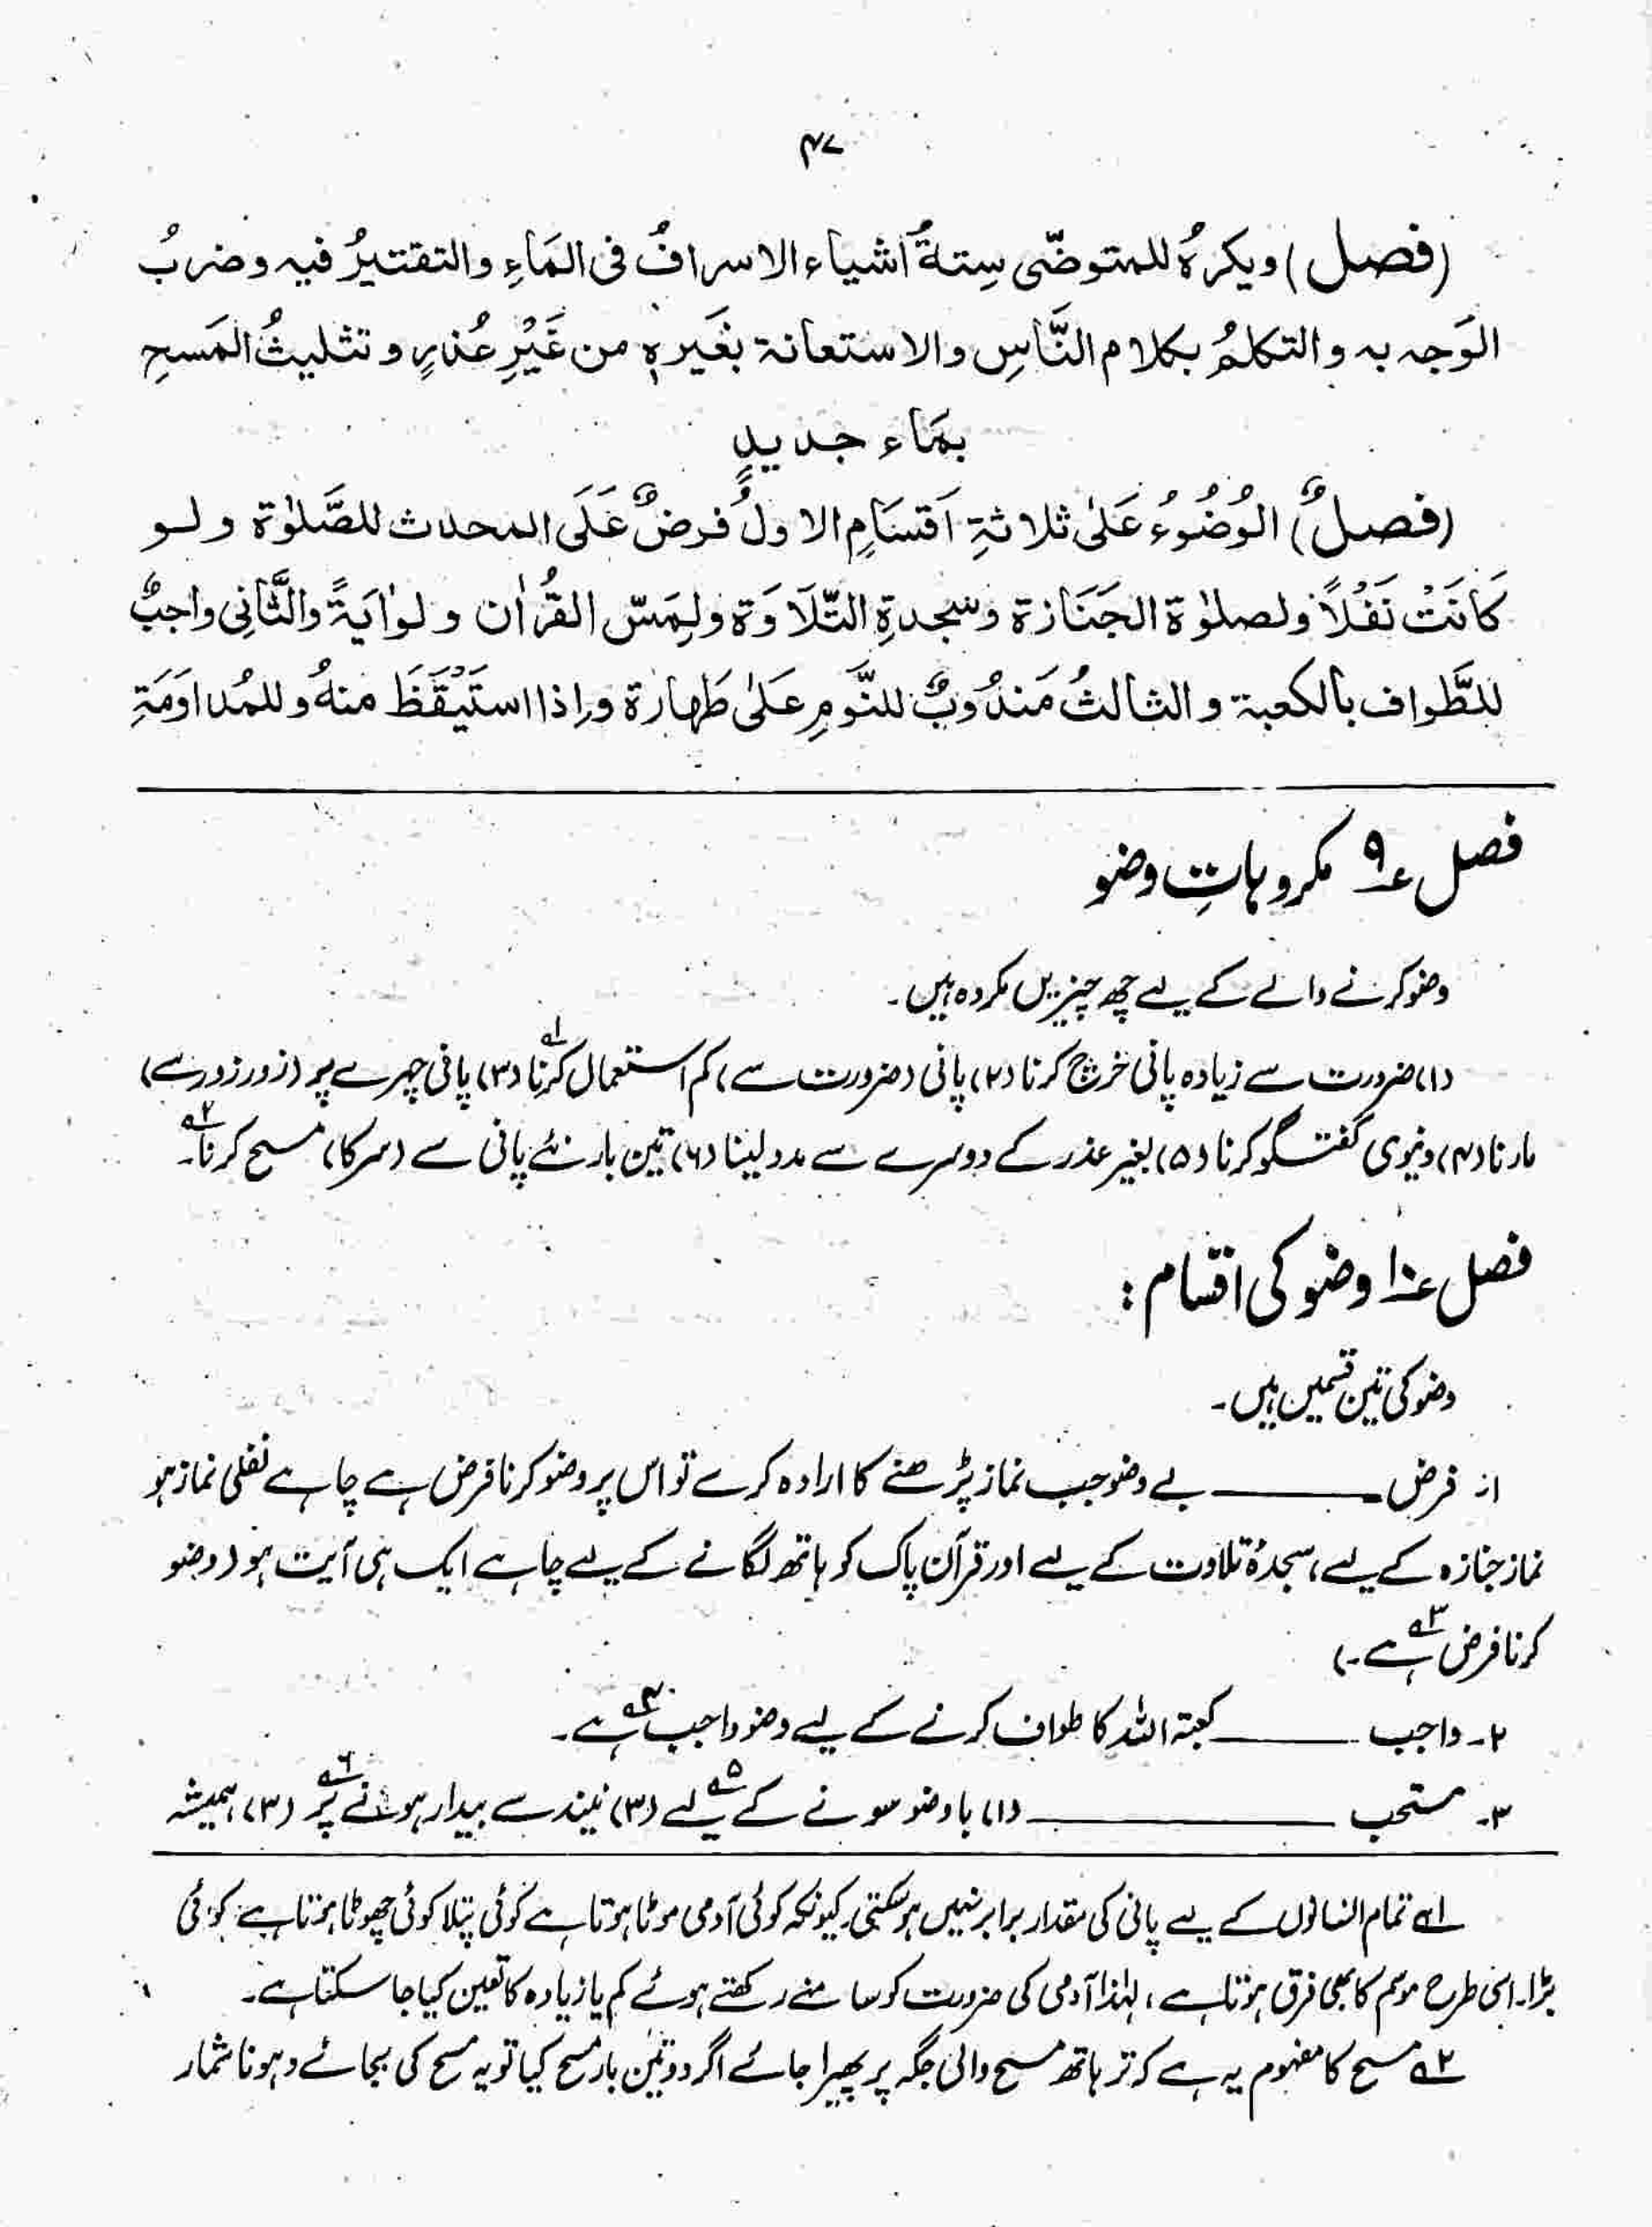 ۴۷
(فصل) ويكرهُ للمتوضّى سِتةُ اشياء الاسرافُ فى المَاءِ والتقتيرُ فيه وضربُ
الوَجه به والتكلمُ بكلام النَّاسِ والاستعانة بغَيرهٖ من غَيْرِ عُذرٍ وتثليثُ المَسحِ
بمَاء جديدٍ
(فصلٌ) الوُضُوُءُ عَلىٰ ثلاثةِ اَقسَامٍ الاولُ فرضٌ عَلَى المحدث للصَّلوٰة ولو
كَانَتْ نَفْلاً ولصلوٰة الجَنَازة وسجدةِ التّلَاوَة ولِمَسّ القُراٰن ولواٰيَةً والثَّانِى واجبٌ
للطَّواف بالكعبة والثالثُ مَندُوبٌ للنَّومِ عَلىٰ طَهارة وإذا استَيْقَظَ منهُ وللمُداوَمَةِ
فصل ۹؏ مکروہاتِ وضو
وضو کرنے والے کے لیے چھ چیزیں مکروہ ہیں۔
(۱) ضرورت سے زیادہ پانی خرچ کرنا (۲) پانی (ضرورت سے) کم استعمال کرنا۱ (۳) پانی چہرے پر (زور زور سے)
مارنا (۴) دنیوی گفتگو کرنا (۵) بغیر عذر کے دوسرے سے مدد لینا (۶) تین بار نئے پانی سے (سر کا) مسح کرنا۲۔
فصل ۱۰؏ وضو کی اقسام :
وضو کی تین قسمیں ہیں۔
۱۔ فرض ــــــــ بے وضو جب نماز پڑھنے کا ارادہ کرے تو اس پر وضو کرنا فرض ہے چاہے نفلی نماز ہو
نماز جنازہ کے لیے، سجدۂ تلاوت کے لیے اور قرآن پاک کو ہاتھ لگانے کے لیے چاہے ایک ہی آیت ہو (وضو
کرنا فرض۳ ہے۔)
۲۔ واجب ــــــــ کعبۃ اللہ کا طواف کرنے کے لیے وضو واجب۴ ہے۔
۳۔ مستحب ــــــــ (۱) باوضو سونے کے لیے۵ (۳) نیند سے بیدار ہونے پر۶ (۳) ہمیشہ
۱؎ تمام انسانوں کے لیے پانی کی مقدار برابر نہیں ہوسکتی کیونکہ کوئی آدمی موٹا ہوتا ہے کوئی پتلا کوئی چھوٹا ہوتا ہے کوئی
بڑا۔ اسی طرح موسم کا بھی فرق ہوتا ہے، لہٰذا آدمی کی ضرورت کو سامنے رکھتے ہوئے کم یا زیادہ کا تعین کیا جا سکتا ہے۔
۲؎ مسح کا مفہوم یہ ہے کہ تر ہاتھ مسح والی جگہ پر پھیرا جائے اگر دو تین بار مسح کیا تو یہ مسح کی بجائے دھونا شمار